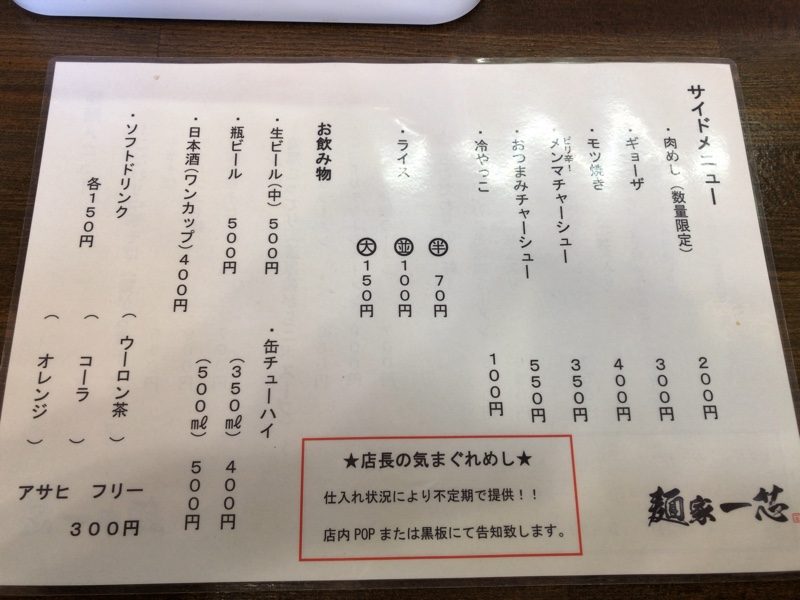 サイドメニュー
・肉めし（数量限定） 200円
・ギョーザ 300円
・モツ焼き 400円
ピリ辛！
・メンマチャーシュー 350円
・おつまみチャーシュー 550円
・冷やっこ 100円
・ライス
㊗半 70円
並 100円
大 150円
お飲み物
・生ビール（中）500円
・瓶ビール 500円
・日本酒（ワンカップ）400円
・ソフトドリンク
各150円
・缶チューハイ
（350㎖） 400円
（500㎖） 500円
（ ウーロン茶 ）
（ コーラ ）
（ オレンジ ）
アサヒ フリー
300円
★店長の気まぐれめし★
仕入れ状況により不定期で提供！！
店内POPまたは黒板にて告知致します。
麺家一芯